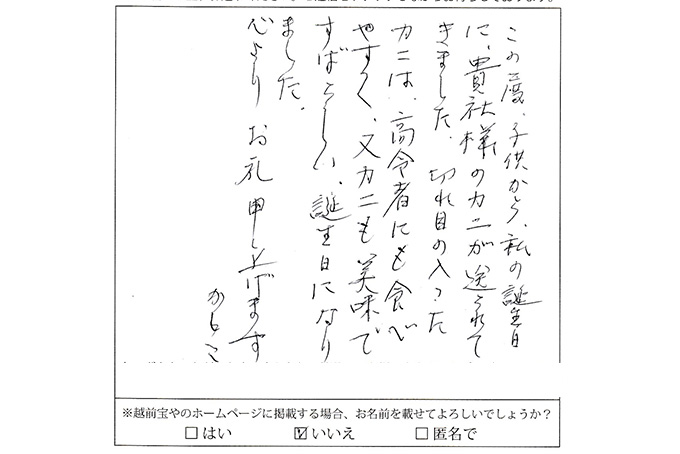 この度、子供から、私の誕生日
に、貴社様のカニが送られて
きました。切れ目の入った
カニは、高令者にも食べ
やすく、又カニも美味で
すばらしい、誕生日になり
ました。
心より お礼申し上げます
かしこ
※越前宝やのホームページに掲載する場合、お名前を載せてよろしいでしょうか？
□はい ☑いいえ □匿名で